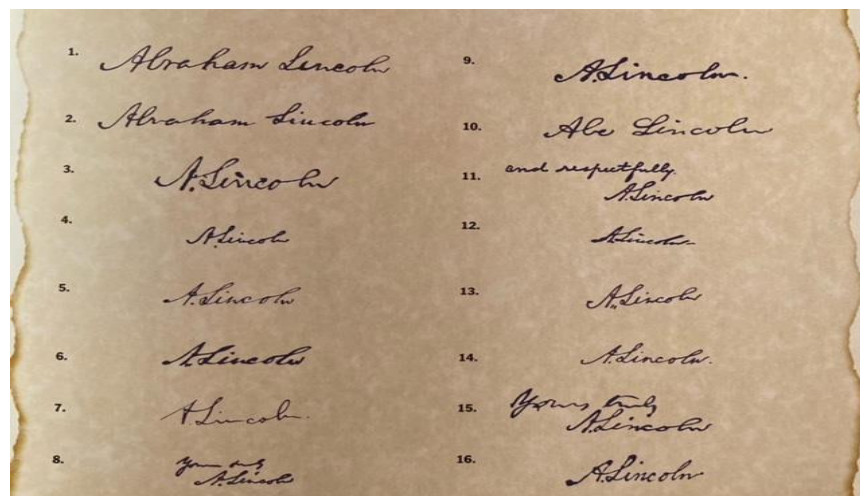 1. Abraham Lincoln
2. Abraham Lincoln
3. A. Lincoln
4. A. Lincoln
5. A. Lincoln
6. A. Lincoln
7. A Lincoln.
8. yours truly
A. Lincoln
9. A. Lincoln.
10. Abe Lincoln
11. and respectfully.
A. Lincoln
12. A. Lincoln
13. A. Lincoln
14. A. Lincoln.
15. Yours truly
A. Lincoln
16. A. Lincoln